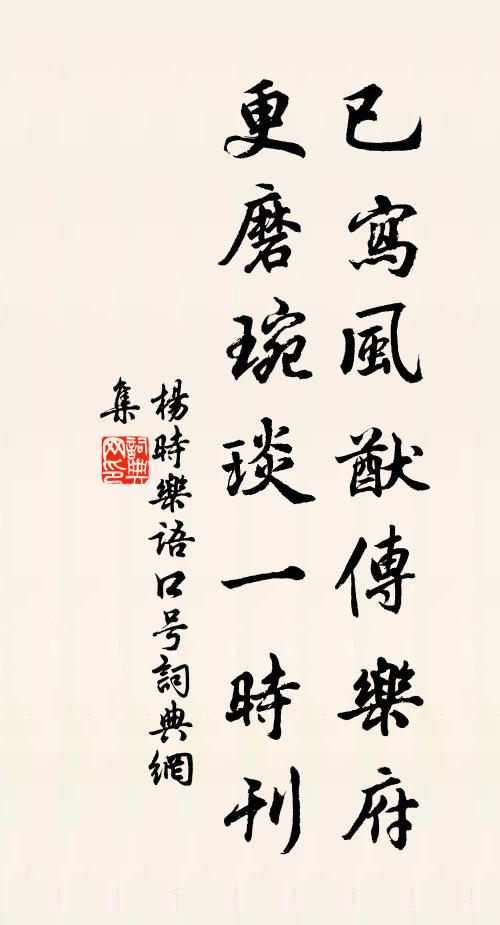 已寫風猷傳樂府
更磨琬琰一時刊
楊時樂語口号詞典網
集
詞典網印